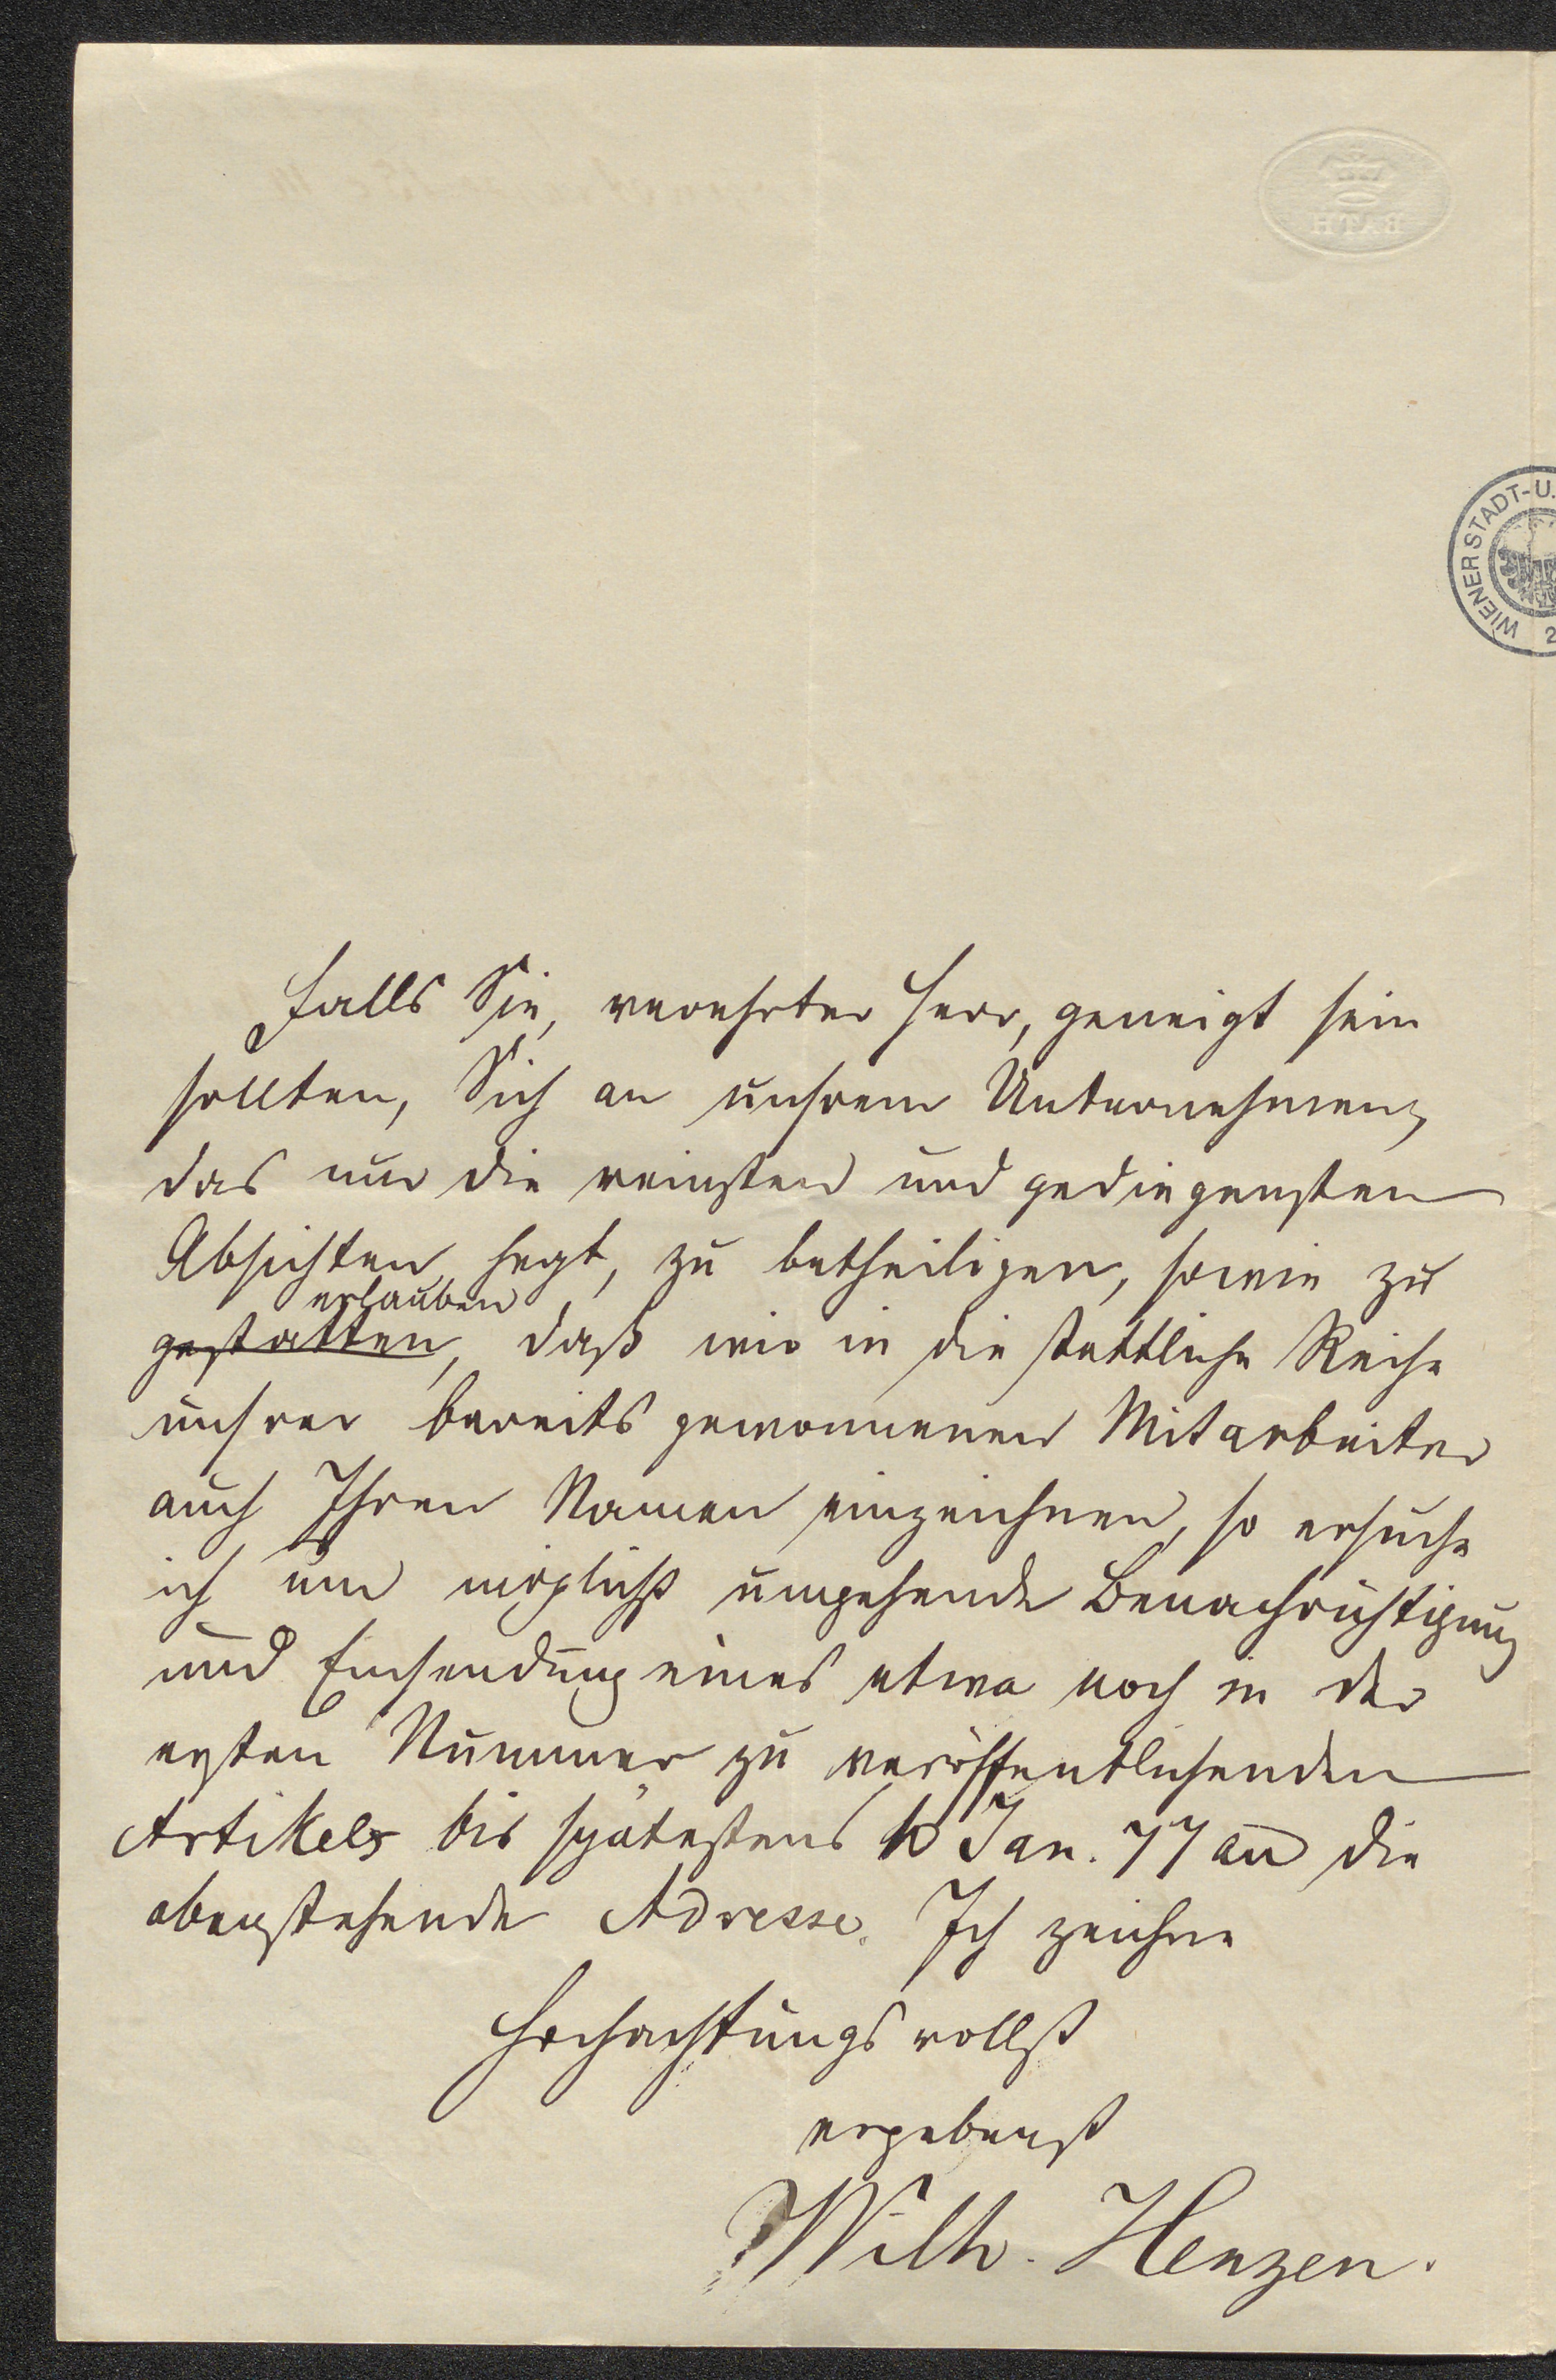 BATH
WIENER STADT-U.
2
Falls Sie, verehrter Herr, geneigt sein
sollten, Sich an unsrem Unternehmen,
das nur die reinsten und gediegensten
Absichten hegt, zu betheiligen, sowie zu
erlauben
gestatten, daß wir in die stattliche Reihe
unsrer bereits gewonnenen Mitarbeiter
auch Ihren Namen einzeichnen, so ersuche
ich um möglichst umgehende Benachrichtigung
und Einsendung eines etwa noch in der
ersten Nummer zu veröffentlichenden
Artikels bis spätestens 10 Jan. 77 an die
obenstehende Adresse. Ich zeichne
Hochachtungsvollst
ergebenst
Wilh. Henzen.